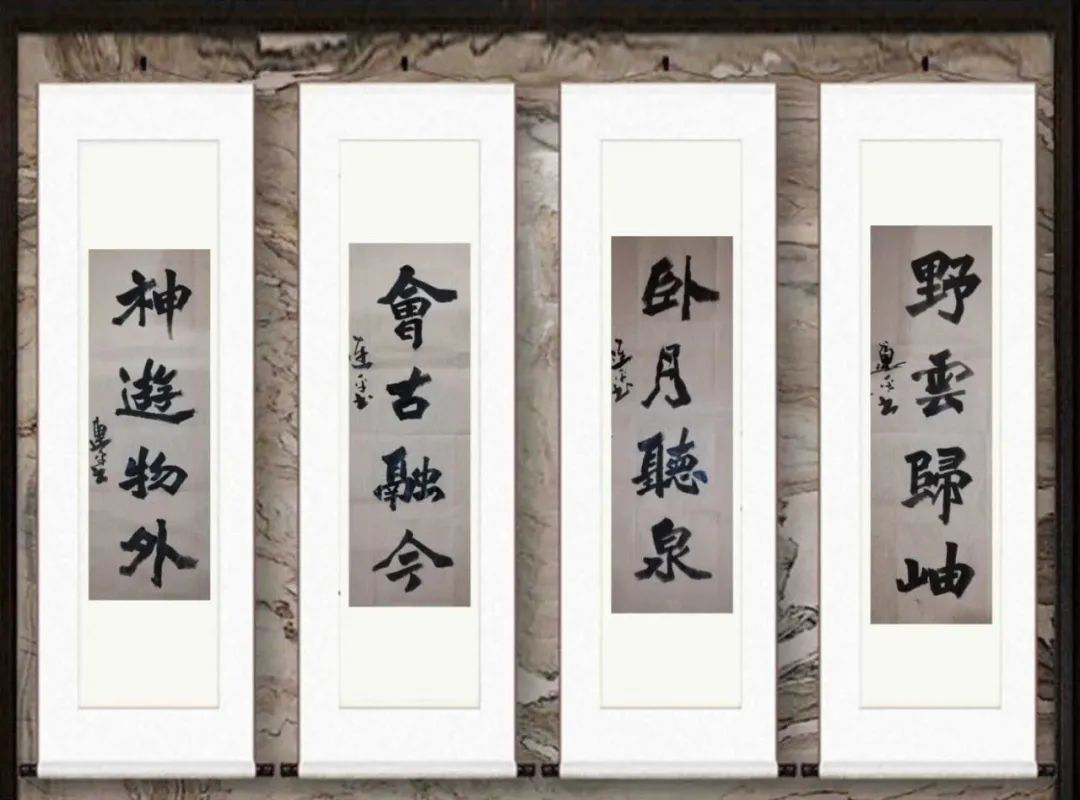 野雲歸岫
卧月聽泉
會古融今
神遊物外